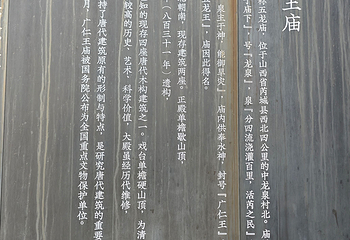 王庙
称五龙庙，位于山西省芮城县西北四公里的中龙泉村北。庙
于庙下”，号“龙泉”，泉“分四流浇灌百里，活芮之民”
泉主乎神，能御旱灾”，庙内供奉水神，封号“广仁王”
五龙王”，庙因此得名。
朝南，现存建筑两座。正殿单檐歇山顶，
（八百三十一年）造构，
知的现存四座唐代木构建筑之一。戏台单檐硬山顶，为清
较高的历史、艺术、科学价值，大殿虽经历代维修，
持了唐代建筑原有的形制与特点，是研究唐代建筑的重要
月，广仁王庙被国务院公布为全国重点文物保护单位。